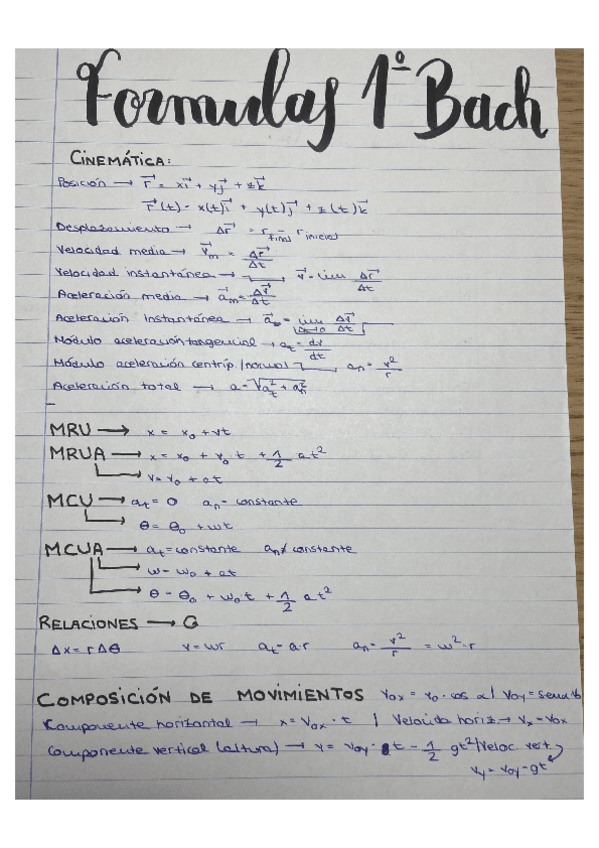 Formulas 1º Bach
CINEMÁTICA:
Posición → r⃗ = xi⃗ + yj⃗ + zk⃗
r⃗(t) = x(t)i⃗ + y(t)j⃗ + z(t)k⃗
Desplazamiento → Δr⃗ = r final - r inicial
Velocidad media → v⃗m = Δr⃗/Δt
Velocidad instantánea → v⃗ = lim Δr⃗/Δt
Aceleración media → a⃗m = Δv⃗/Δt
Aceleración Instantánea → a⃗ = lim Δt→0 Δv⃗/Δt
Módulo aceleración tangencial → at = dv/dt
Módulo aceleración centríp./normal → an = v²/r
Aceleración total → a = √(at² + an²)
MRU → x = x₀ + vt
MRUA → x = x₀ + v₀ t + 1/2 at²
→ v = v₀ + at
MCU → at = 0 an = constante
→ θ = θ₀ + wt
MCUA → at = constante an ≠ constante
→ w = w₀ + at
→ θ = θ₀ + w₀ t + 1/2 at²
RELACIONES → G
Δx = rΔθ v = wr at = a·r an = v²/r = w²·r
COMPOSICIÓN DE MOVIMIENTOS v₀x = v₀ · cos α / v₀y = senα v₀
Componente horizontal → x = v₀x · t / Velocida horiz → vx = v₀x
Componente vertical (altura) → y = v₀y · t - 1/2 gt² / Veloc vert
vy = v₀y - gt